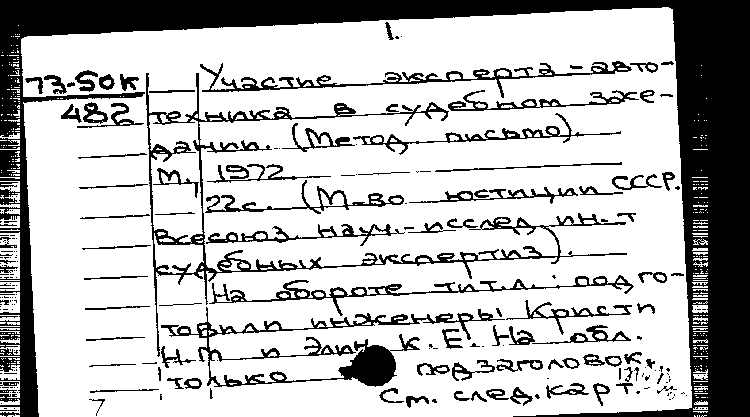 1.
73-50к Участие эксперта-авто-
482 техника в судебном засе-
дании. (Метод. письмо).
М., 1972.
22с. (М-во юстиции СССР.
Всесоюз. науч.-исслед. ин-т
судебных экспертиз).
На обороте тит.л.: подго-
товили инженеры Кристи
Н.М и Элин К.Е. На обл.
только подзаголовок.
См. след.карт.
7